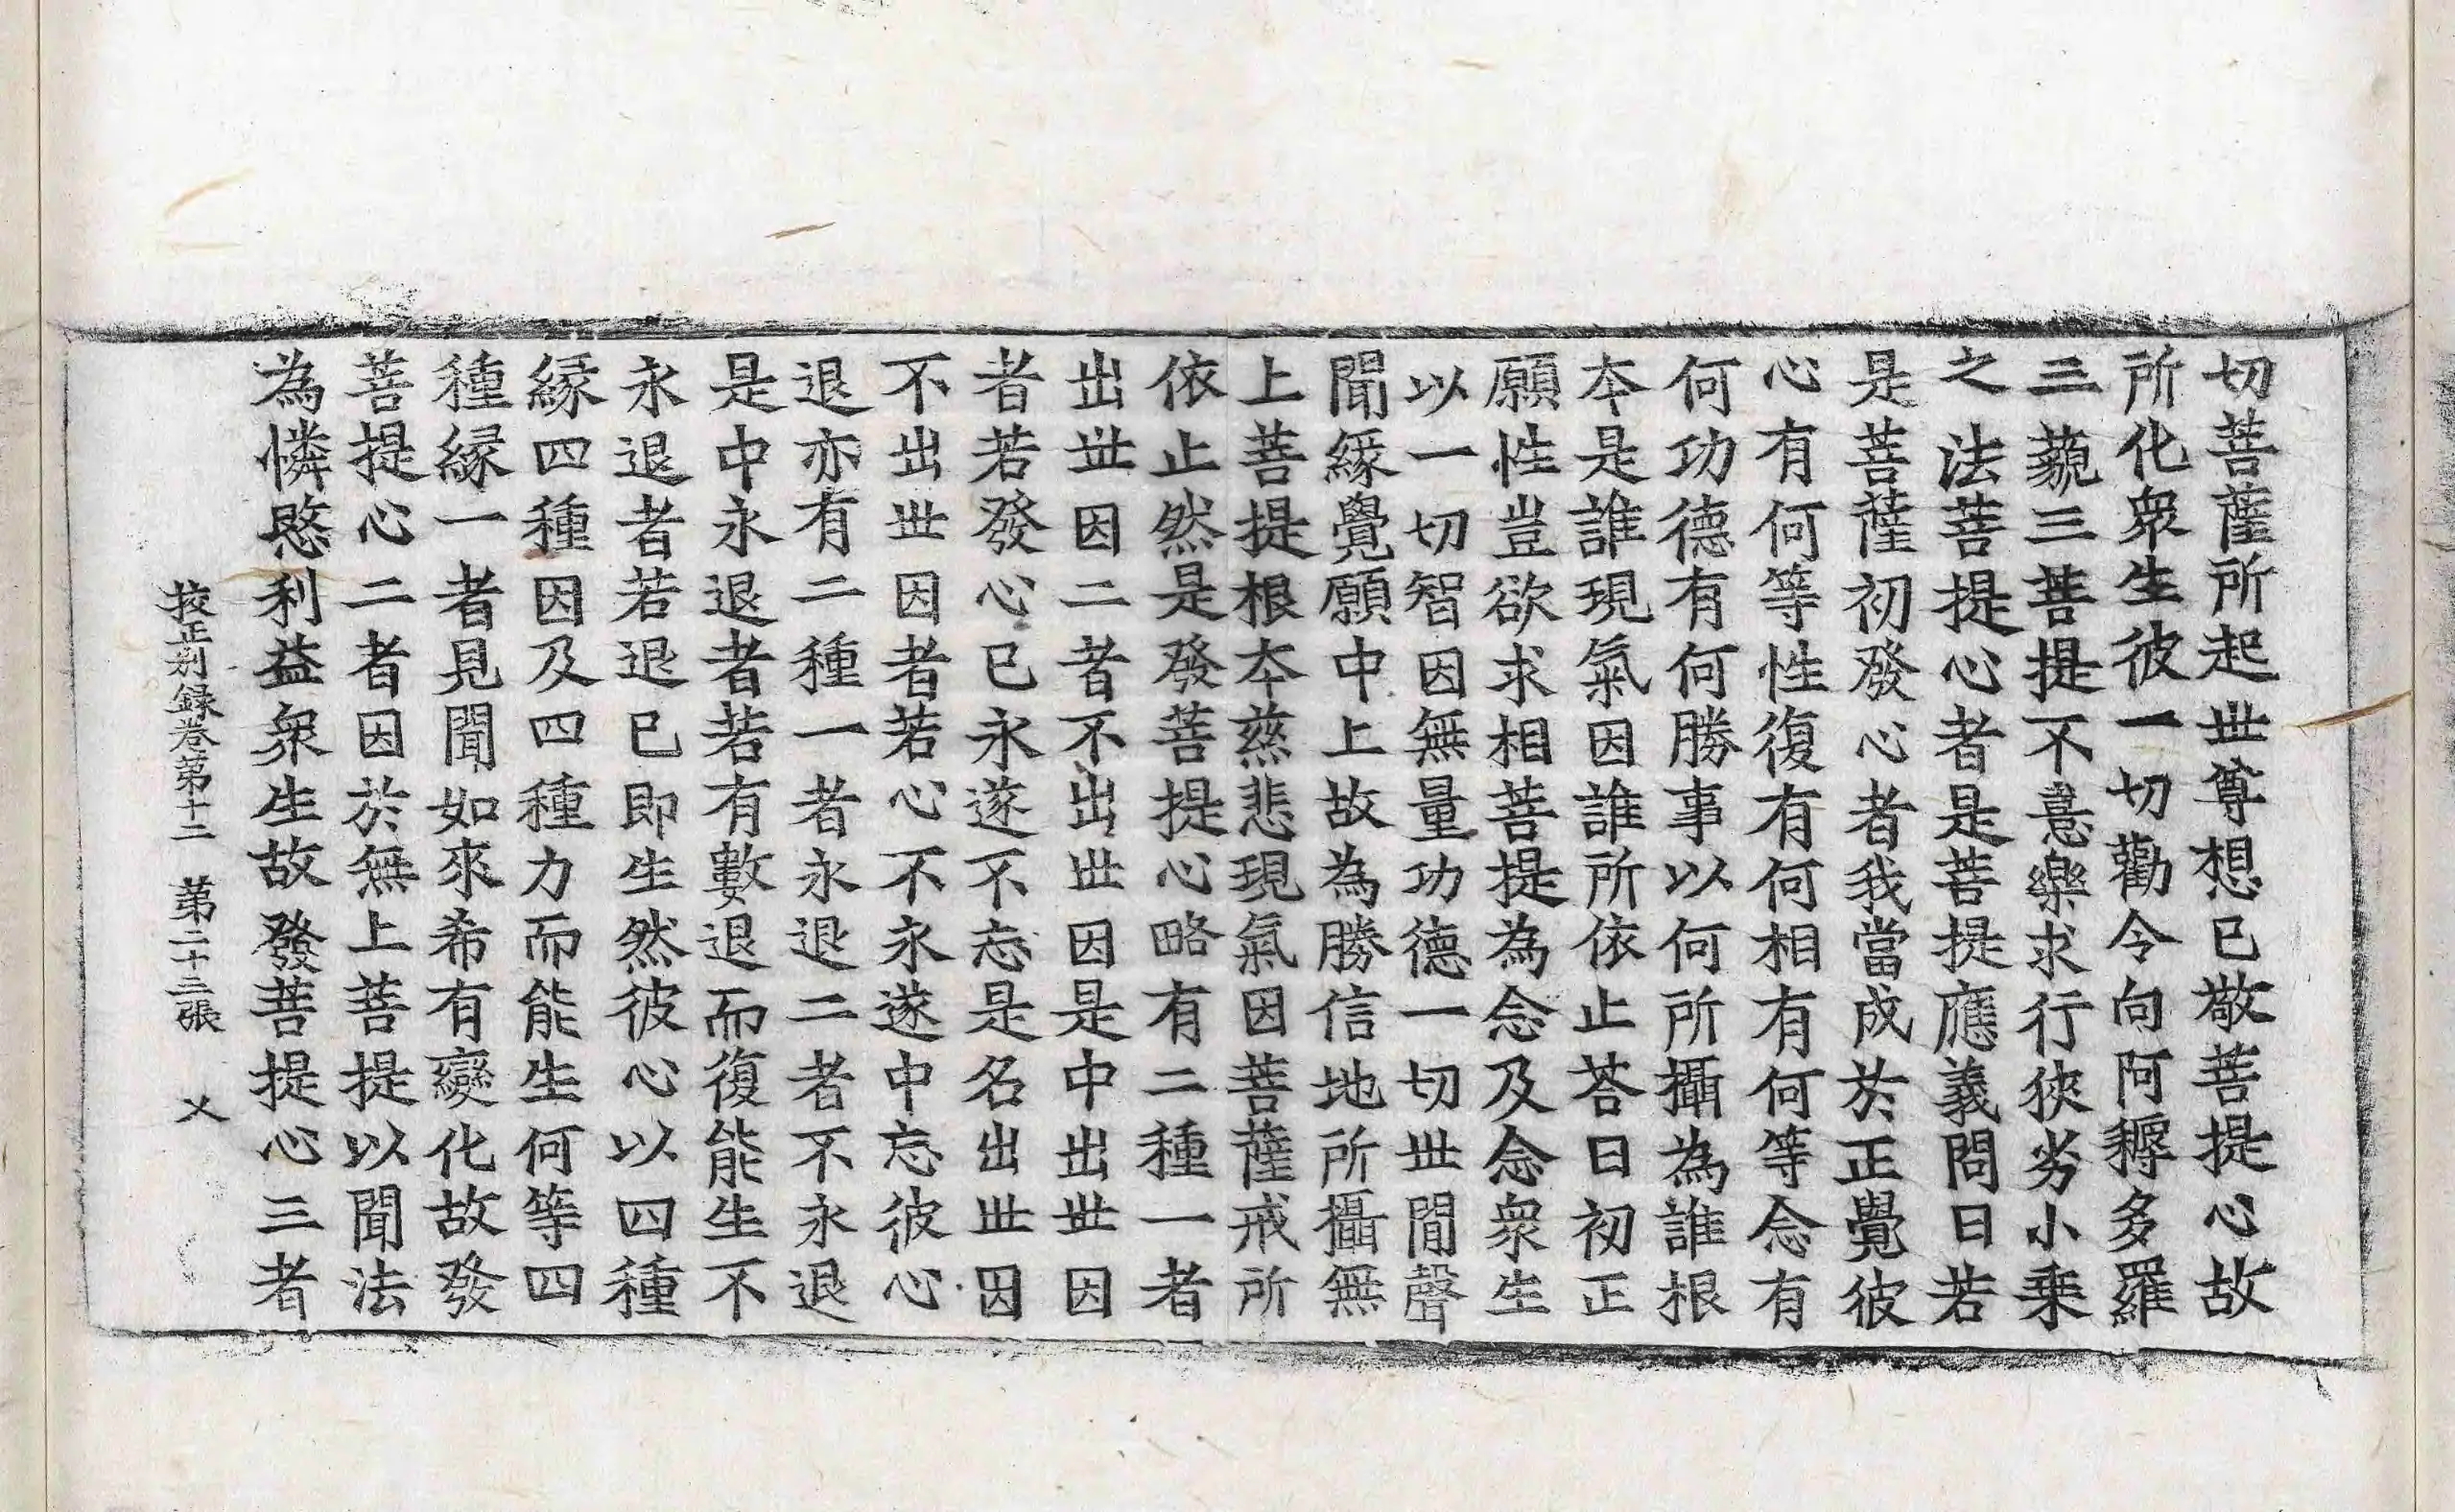 切菩薩所起世尊想已敬菩提心故
所化衆生彼一切勸令向阿耨多羅
三藐三菩提不憙樂求行狹劣小乗
之法菩提心者是菩提應義問曰若
是菩薩初發心者我當成於正覺彼
心有何等性復有何相有何等念有
何功德有何勝事以何所攝為誰根
本是誰現氣因誰所依止荅曰初正
願性豈欲求相菩提為念及念衆生
以一切智因無量功德一切世閒聲
聞緣覺願中上故為勝信地所攝無
上菩提根本慈悲現氣因菩薩戒所
依止然是發菩提心略有二種一者
出世因二者不出世因是中出世因
者若發心已永遂不忘是名出世因
不出世因者若心不永遂中忘彼心
退亦有二種一者永退二者不永退
是中永退者若有數退而復能生不
永退者若退已即生然彼心以四種
緣四種因及四種力而能生何等四
種緣一者見聞如來希有變化故發
菩提心二者因於無上菩提以聞法
為憐愍利益衆生故發菩提心三者
挍正別録卷第十二　第二十三張　乂